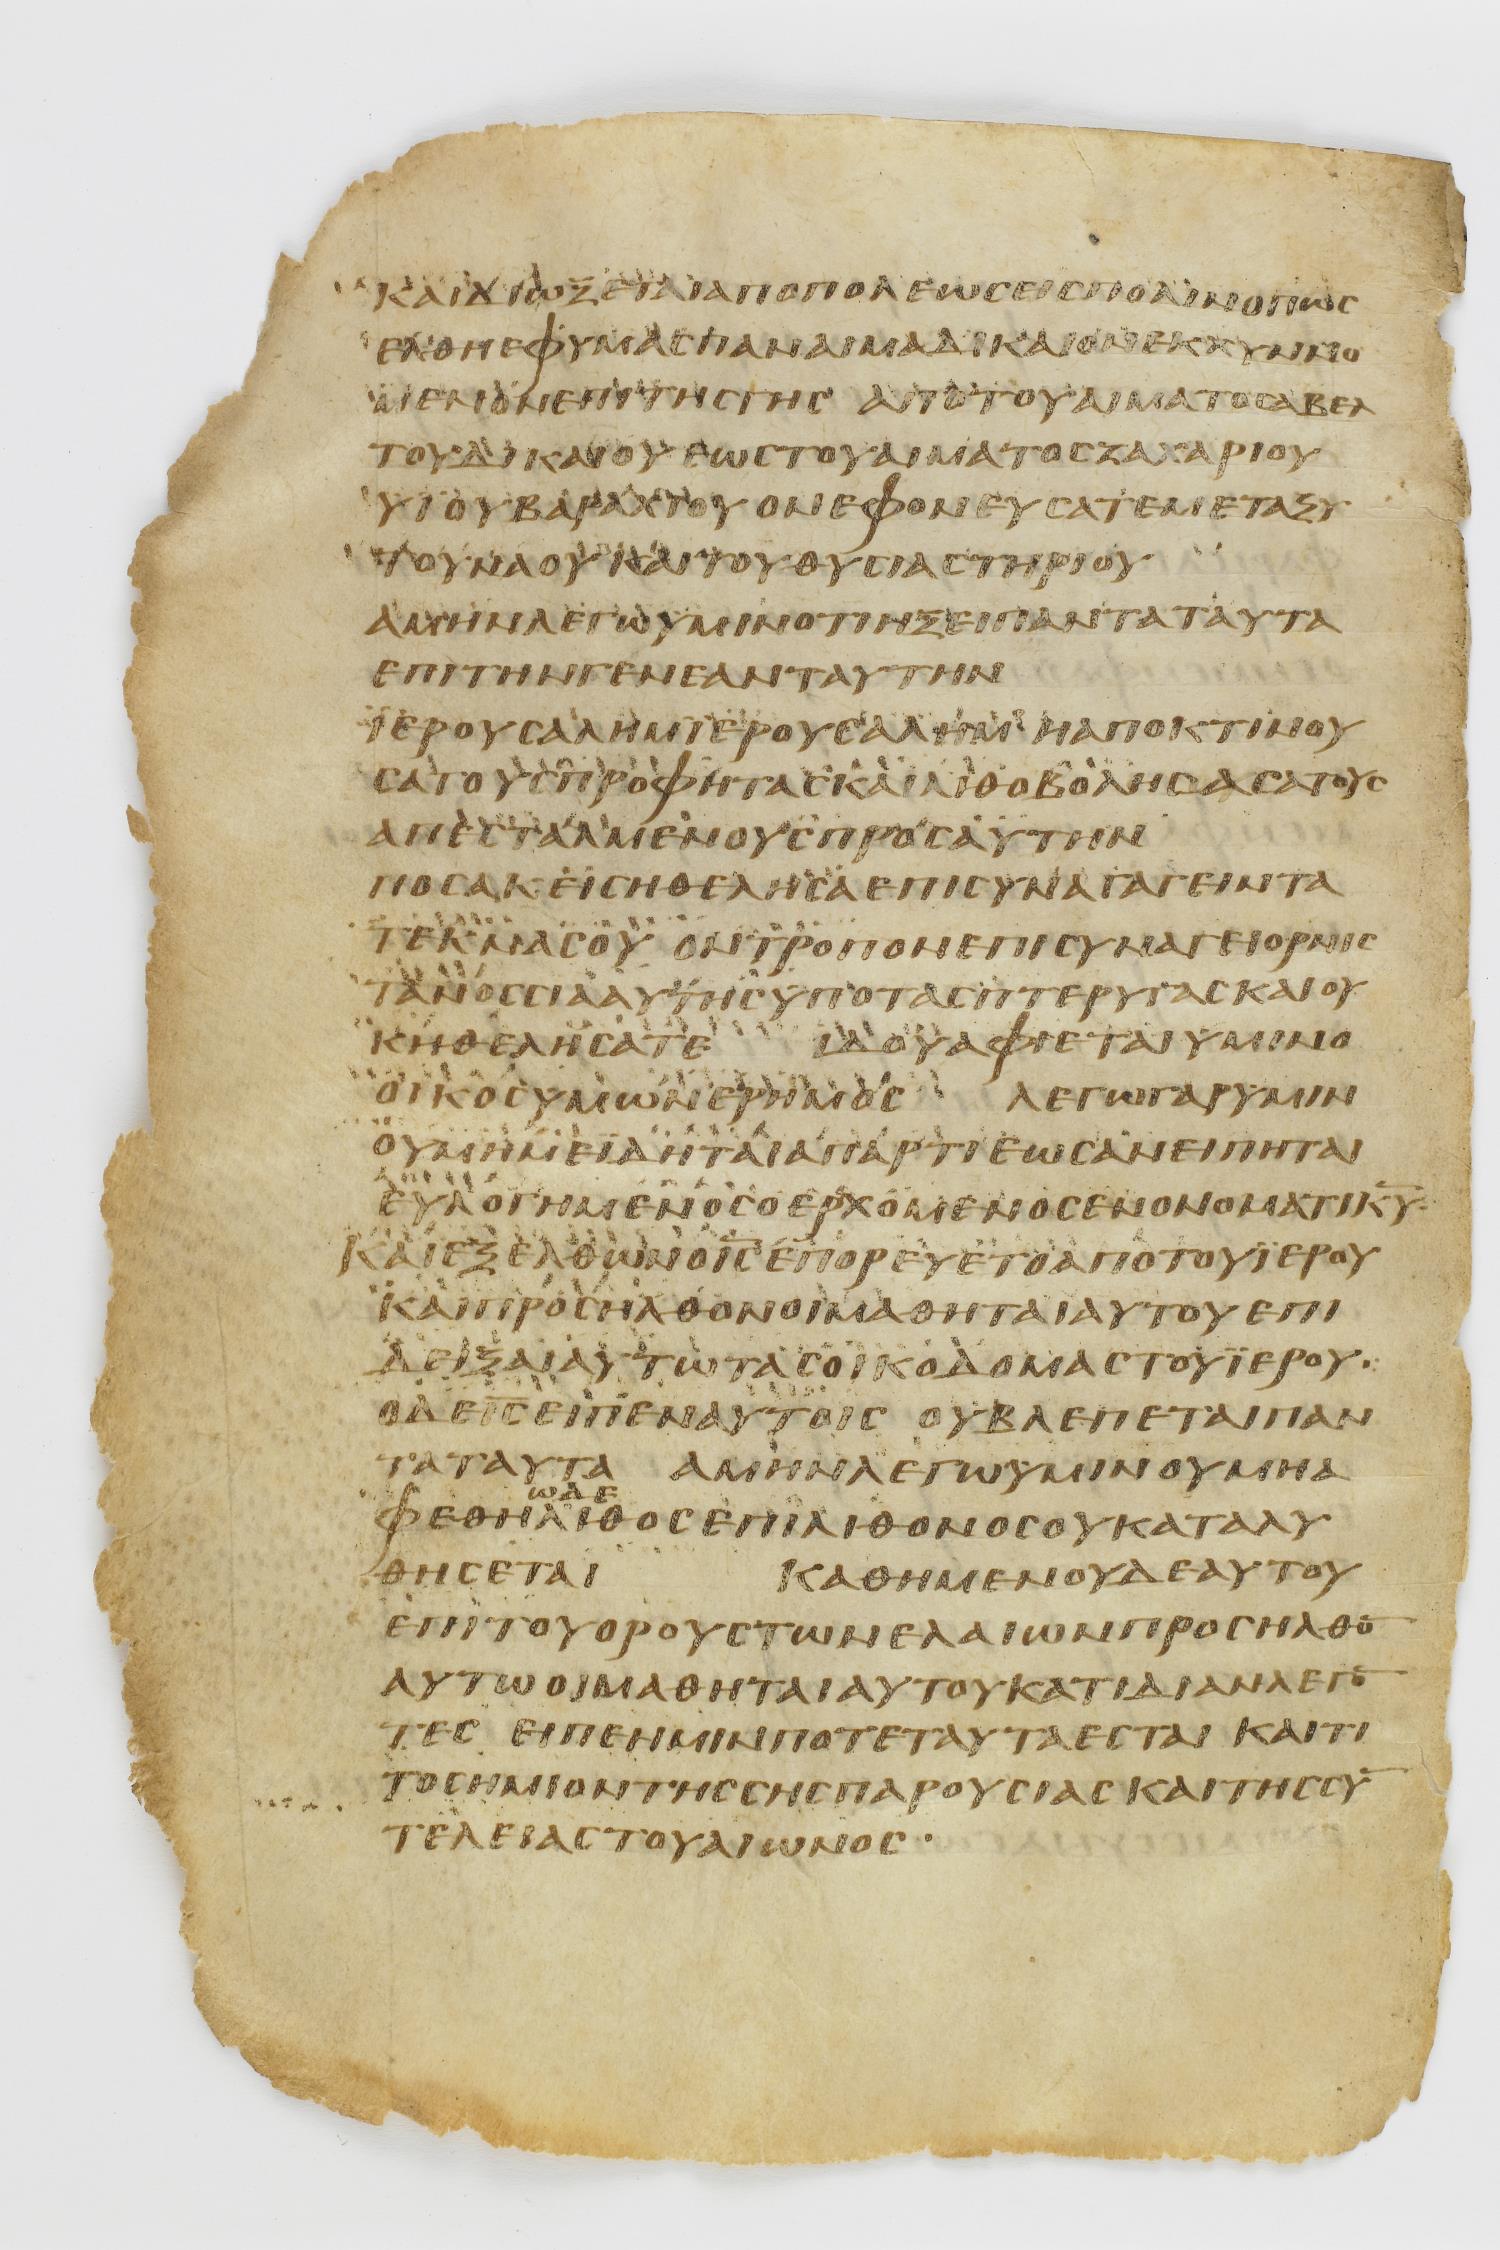 ΚΑΙΔΙΩΞΕΤΑΙΑΠΟΠΟΛΕΩΣΕΙΣΠΟΛΙΝΟΠΩΣ
ΕΛΘΗΕΦΥΜΑΣΠΑΝΑΙΜΑΔΙΚΑΙΟΝΕΚΧΥΝΝΟ
ΜΕΝΟΝΕΠΙΤΗΣΓΗΣ ΑΠΟΤΟΥΑΙΜΑΤΟΣΑΒΕΛ
ΤΟΥΔΙΚΑΙΟΥΕΩΣΤΟΥΑΙΜΑΤΟΣΖΑΧΑΡΙΟΥ
ΥΙΟΥΒΑΡΑΧΙΟΥΟΝΕΦΟΝΕΥΣΑΤΕΜΕΤΑΞΥ
ΤΟΥΝΑΟΥΚΑΙΤΟΥΘΥΣΙΑΣΤΗΡΙΟΥ
ΑΜΗΝΛΕΓΩΥΜΙΝΟΤΙΗΞΕΙΠΑΝΤΑΤΑΥΤΑ
ΕΠΙΤΗΝΓΕΝΕΑΝΤΑΥΤΗΝ
ΪΕΡΟΥΣΑΛΗΜΪΕΡΟΥΣΑΛΗΜ ΗΑΠΟΚΤΙΝΟΥ
ΣΑΤΟΥΣΠΡΟΦΗΤΑΣΚΑΙΛΙΘΟΒΟΛΗΣΑΣΑΤΟΥΣ
ΑΠΕΣΤΑΛΜΕΝΟΥΣΠΡΟΣΑΥΤΗΝ
ΠΟΣΑΚΕΙΣΗΘΕΛΗΣΑΕΠΙΣΥΝΑΓΑΓΕΙΝΤΑ
ΤΕΚΝΑΣΟΥ ΟΝΤΡΟΠΟΝΕΠΙΣΥΝΑΓΕΙΟΡΝΙΣ
ΤΑΝΟΣΣΙΑΑΥΤΗΣΥΠΟΤΑΣΠΤΕΡΥΓΑΣΚΑΙΟΥ
ΚΗΘΕΛΗΣΑΤΕ ΙΔΟΥΑΦΙΕΤΑΙΥΜΙΝΟ
ΟΙΚΟΣΥΜΩΝΕΡΗΜΟΣ ΛΕΓΩΓΑΡΥΜΙΝ
ΟΥΜΗΜΕΙΔΗΤΑΙΑΠΑΡΤΙΕΩΣΑΝΕΙΠΗΤΑΙ
ΕΥΛΟΓΗΜΕΝΟΣΟΕΡΧΟΜΕΝΟΣΕΝΟΝΟΜΑΤΙΚ̅Υ̅:
ΚΑΙΕΞΕΛΘΩΝΟΙ̅Σ̅ΕΠΟΡΕΥΕΤΟΑΠΟΤΟΥΪΕΡΟΥ
ΚΑΙΠΡΟΣΗΛΘΟΝΟΙΜΑΘΗΤΑΙΑΥΤΟΥΕΠΙ
ΔΕΙΞΑΙΑΥΤΩΤΑΣΟΙΚΟΔΟΜΑΣΤΟΥΪΕΡΟΥ:
ΟΔΕΙ̅Σ̅ΕΙΠΕΝΑΥΤΟΙΣ ΟΥΒΛΕΠΕΤΑΙΠΑΝ
ΤΑΤΑΥΤΑ ΑΜΗΝΛΕΓΩΥΜΙΝΟΥΜΗΑ
ΩΔΕ
ΦΕΘΗΛΙΘΟΣΕΠΙΛΙΘΟΝΟΣΟΥΚΑΤΑΛΥ
ΘΗΣΕΤΑΙ ΚΑΘΗΜΕΝΟΥΔΕΑΥΤΟΥ
ΕΠΙΤΟΥΟΡΟΥΣΤΩΝΕΛΑΙΩΝΠΡΟΣΗΛΘΟ̅
ΑΥΤΩΟΙΜΑΘΗΤΑΙΑΥΤΟΥΚΑΤΙΔΙΑΝΛΕΓΟ̅
ΤΕΣ ΕΙΠΕΗΜΙΝΠΟΤΕΤΑΥΤΑΕΣΤΑΙ ΚΑΙΤΙ
ΤΟΣΗΜΙΟΝΤΗΣΣΗΣΠΑΡΟΥΣΙΑΣΚΑΙΤΗΣΣΥ̅
ΤΕΛΕΙΑΣΤΟΥΑΙΩΝΟΣ·